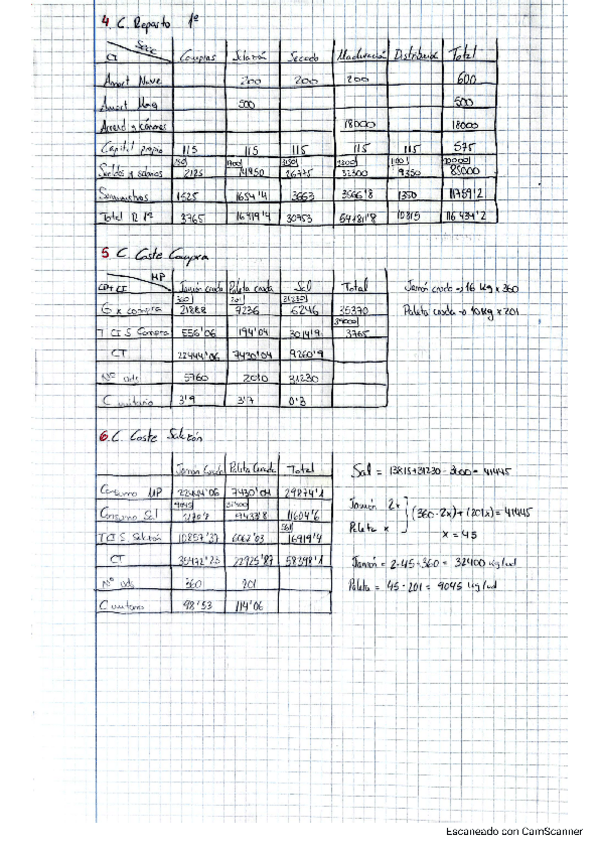 4. C. Reparto 1º
Secc
CI
Compras Salazón Secado Maduración Distribución Total
Amort Nave 200 200 200 600
Amort Maq 500 500
18000 18000
Capital propio 115 115 115 115 115 575
Sueldos y salarios 2125 26775 32500 9350 85000
Suministros 1525 1654'4 3663 3566'8 1350 11759'2
Total R 1º 3765 16919'4 30753 10815 116434'2
5 C. Coste Compra
MP
CP+CI Jamón crudo Paleta cruda Sal Total
360 201 31230
G x compra 21888 7236 6246 35370
T CIS Compra 556'06 194'04 3014'9 3765
CT 22444'06 7430'04 9260'9
Nº uds 5760 2010 31230
C unitario 3'9 3'7 0'3
Jamón crudo → 16 kg x 360
Paleta cruda → 10 kg x 201
6. C. Coste Salazón
Jamón Crudo Paleta Cruda Total
Consumo MP 22444'06 7430'04 29874'1
Consumo Sal 11604'6
561
T CIS Salazón 10857'37 6062'03 16919'4
CT 35472'23 22925'87 58398'1
Nº uds 360 201
C unitario 98'53 114'06
Sal = 13815+31230-3600 = 41445
Jamón 2x
Paleta x
(360·2x)+(201x) = 41445
x = 45
Jamón = 2·45·360 = 32400 kg/ud
Paleta = 45·201 = 9045 kg/ud
Escaneado con CamScanner